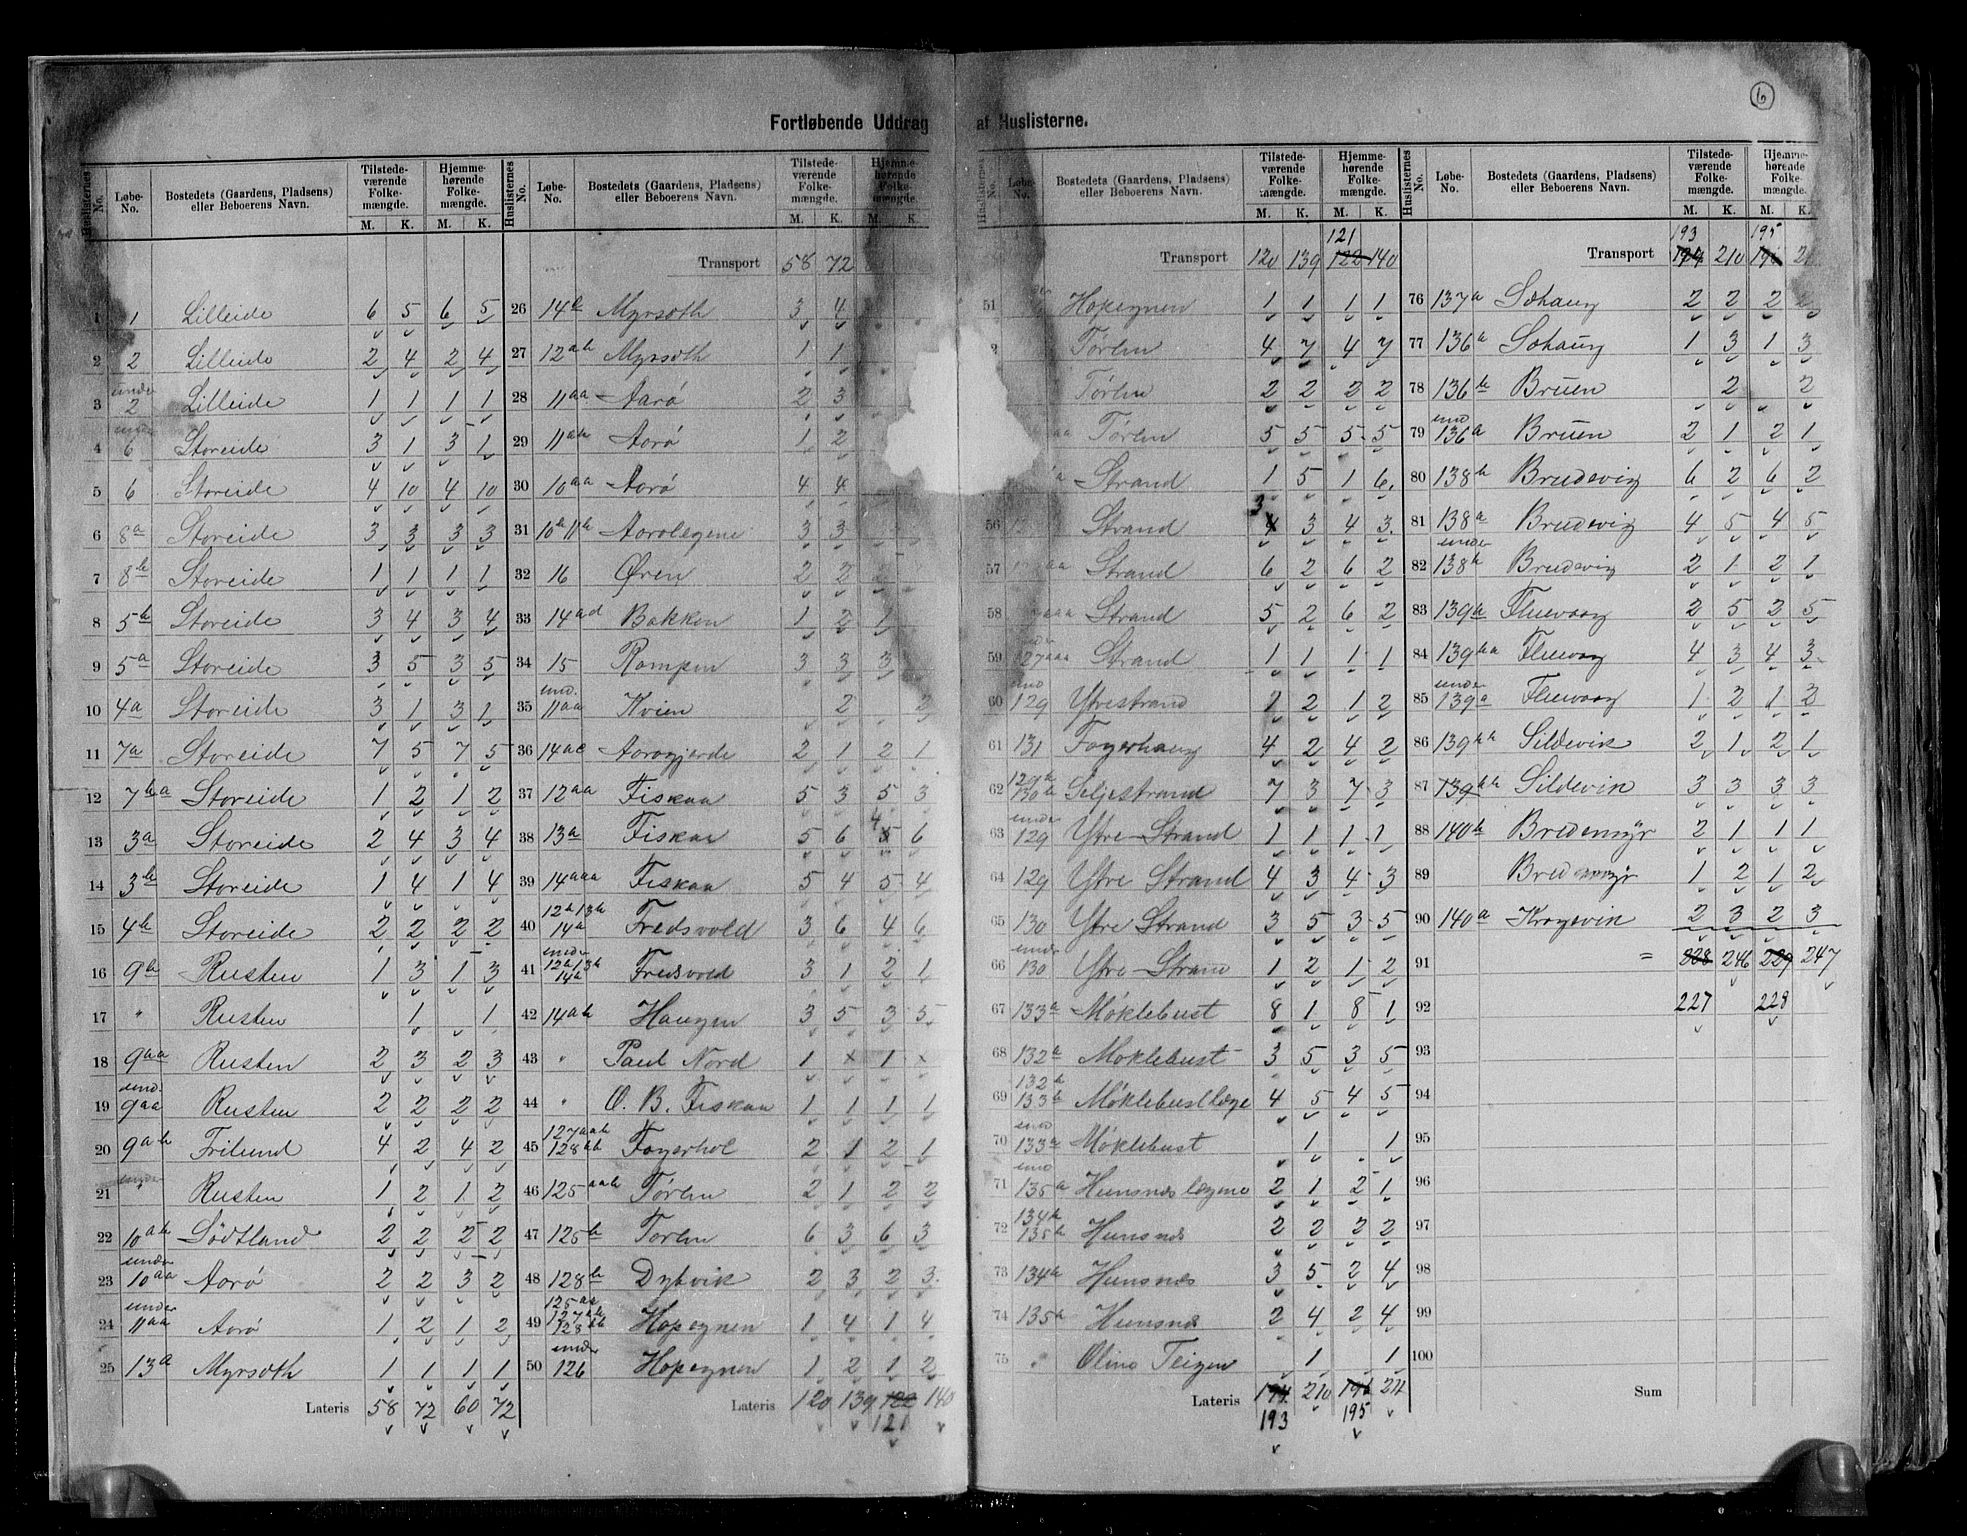 6
Fortløbende Uddrag af Huslisterne.
Huslisternes No. Løbe-No. Bostedets (Gaardens, Pladsens) eller Beboerens Navn. Tilstedeværende Folkemængde. Hjemmehørende Folkemængde.
M. K. M. K.
1 1 Lilleide 6 5 6 5
2 2 Lilleide 2 4 2 4
3 under 2 Lilleide 1 1 1 1
4 under 6 Storeide 3 1 3 1
5 6 Storeide 4 10 4 10
6 8a Storeide 3 3 3 3
7 8b Storeide 1 1 1 1
8 5b Storeide 3 4 3 4
9 5a Storeide 3 5 3 5
10 4a Storeide 3 1 3 1
11 7a Storeide 7 5 7 5
12 7ba Storeide 1 2 1 2
13 3a Storeide 2 4 3 4
14 3b Storeide 1 4 1 4
15 4b Storeide 2 2 2 2
16 9b Rusten 1 3 1 3
17 " Rusten 1 1
18 9aa Rusten 2 3 2 3
19 und. 9aa Rusten 2 2 2 2
20 9ab Frilund 4 2 4 2
21 under " Rusten 1 2 1 2
22 10ab Sødtland 2 2 2 2
23 under 10aa Aarø 2 2 3 2
24 under 11aa Aarø 1 2 1 2
25 13a Myrsæth 1 1 1 1
Lateris 58 72 60 72
Huslisternes No. Løbe-No. Bostedets (Gaardens, Pladsens) eller Beboerens Navn. Tilstedeværende Folkemængde. Hjemmehørende Folkemængde.
M. K. M. K.
Transport 58 72
26 14b Myrsæth 3 4
27 12ab Myrsæth 1 1
28 11aa Aarø 2 3
29 11ab Aarø 1 2
30 10aa Aarø 4 4
31 10b 11b Aarølegene 3 3
32 16 Øren 2 2 2
33 14ad Bakken 1 2 1
34 15 Rampen 3 3 3
35 und. 11aa Kvien 2 2
36 14ac Aarøgjerde 2 1 2 1
37 12aa Fiskaa 5 3 5 3
38 13a Fiskaa 5 6 4 5 6
39 14aaa Fiskaa 5 4 5 4
40 12b 13b 14a Fredsvold 3 6 4 6
41 under 12b 13b 14a Fredsvold 3 1 2 1
42 14ab Haugen 3 5 3 5
43 " Paul Nord 1 × 1 ×
44 " O. B. Fiskaa 1 1 1 1
45 127aab 128bb Fagerhol 2 1 2 1
46 125aab Tøren 2 1 2 2
47 125b Tøren 6 3 6 3
48 128b Dybvik 2 3 2 3
49 125aa 127ab 128 Hopegnen 1 4 1 4
50 under 126 Hopegnen 1 2 1 2
Lateris 120 139 122 140
121
Huslisternes No. Løbe-No. Bostedets (Gaardens, Pladsens) eller Beboerens Navn. Tilstedeværende Folkemængde. Hjemmehørende Folkemængde.
M. K. M. K.
121
Transport 120 139 122 140
51 Hopegnen 1 1 1 1
2 Tøren 4 7 4 7
Tøren 2 2 2 2
aa Tøren 5 5 5 5
a Strand 1 5 1 6
56 Strand 3 4 3 4 3
57 aa Strand 6 2 6 2
58 aaa Strand 5 2 6 2
59 127aaa Strand 1 1 1 1
60 und 129 Ytrestrand 1 2 1 2
61 131 Fagerhaug 4 2 4 2
62 129b 130b Seljestrand 7 3 7 3
63 under 129 Ytre-Strand 1 1 1 1
64 129 Ytre Strand 4 3 4 3
65 130 Ytre Strand 3 5 3 5
66 under 130 Ytre-Strand 1 2 1 2
67 133a Møklebust 8 1 8 1
68 132a Møklebust 3 5 3 5
69 132b 133b Møklebustlæge 4 5 4 5
70 und 133a Møklebust 1 1
71 und 135a Hunsnes lægene 2 1 2 1
72 134b 135b Hunsnes 2 2 2 2
73 134a Hunsnes 3 5 2 4
74 135a Hunsnes 2 4 2 4
75 " Oline Teigen 1 1
Lateris 194 210 196 211
193 195
Huslisternes No. Løbe-No. Bostedets (Gaardens, Pladsens) eller Beboerens Navn. Tilstedeværende Folkemængde. Hjemmehørende Folkemængde.
M. K. M. K.
193 195
Transport 194 210 196 2
76 137a Sæhaug 2 2 2 2
77 136a Sæhaug 1 3 1 3
78 136b Bruen 2 2
79 und 136a Bruen 2 1 2 1
80 138b Brudevig 6 2 6 2
81 138a Brudevig 4 5 4 5
82 under 138b Brudevig 2 1 2 1
83 139a Fluevaag 2 5 2 5
84 139aa Fluevaag 4 3 4 3
85 under 139a Fluevaag 1 2 1 2
86 139bb Sildevik 2 1 2 1
87 139bb Sildevik 3 3 3 3
88 140b Bredemyr 2 1 1 1
89 Bredemyr 1 2 1 2
90 140a Kragevik 2 3 2 3
91 = 228 246 229 247
92 227 228
93
94
95
96
97
98
99
100
Sum